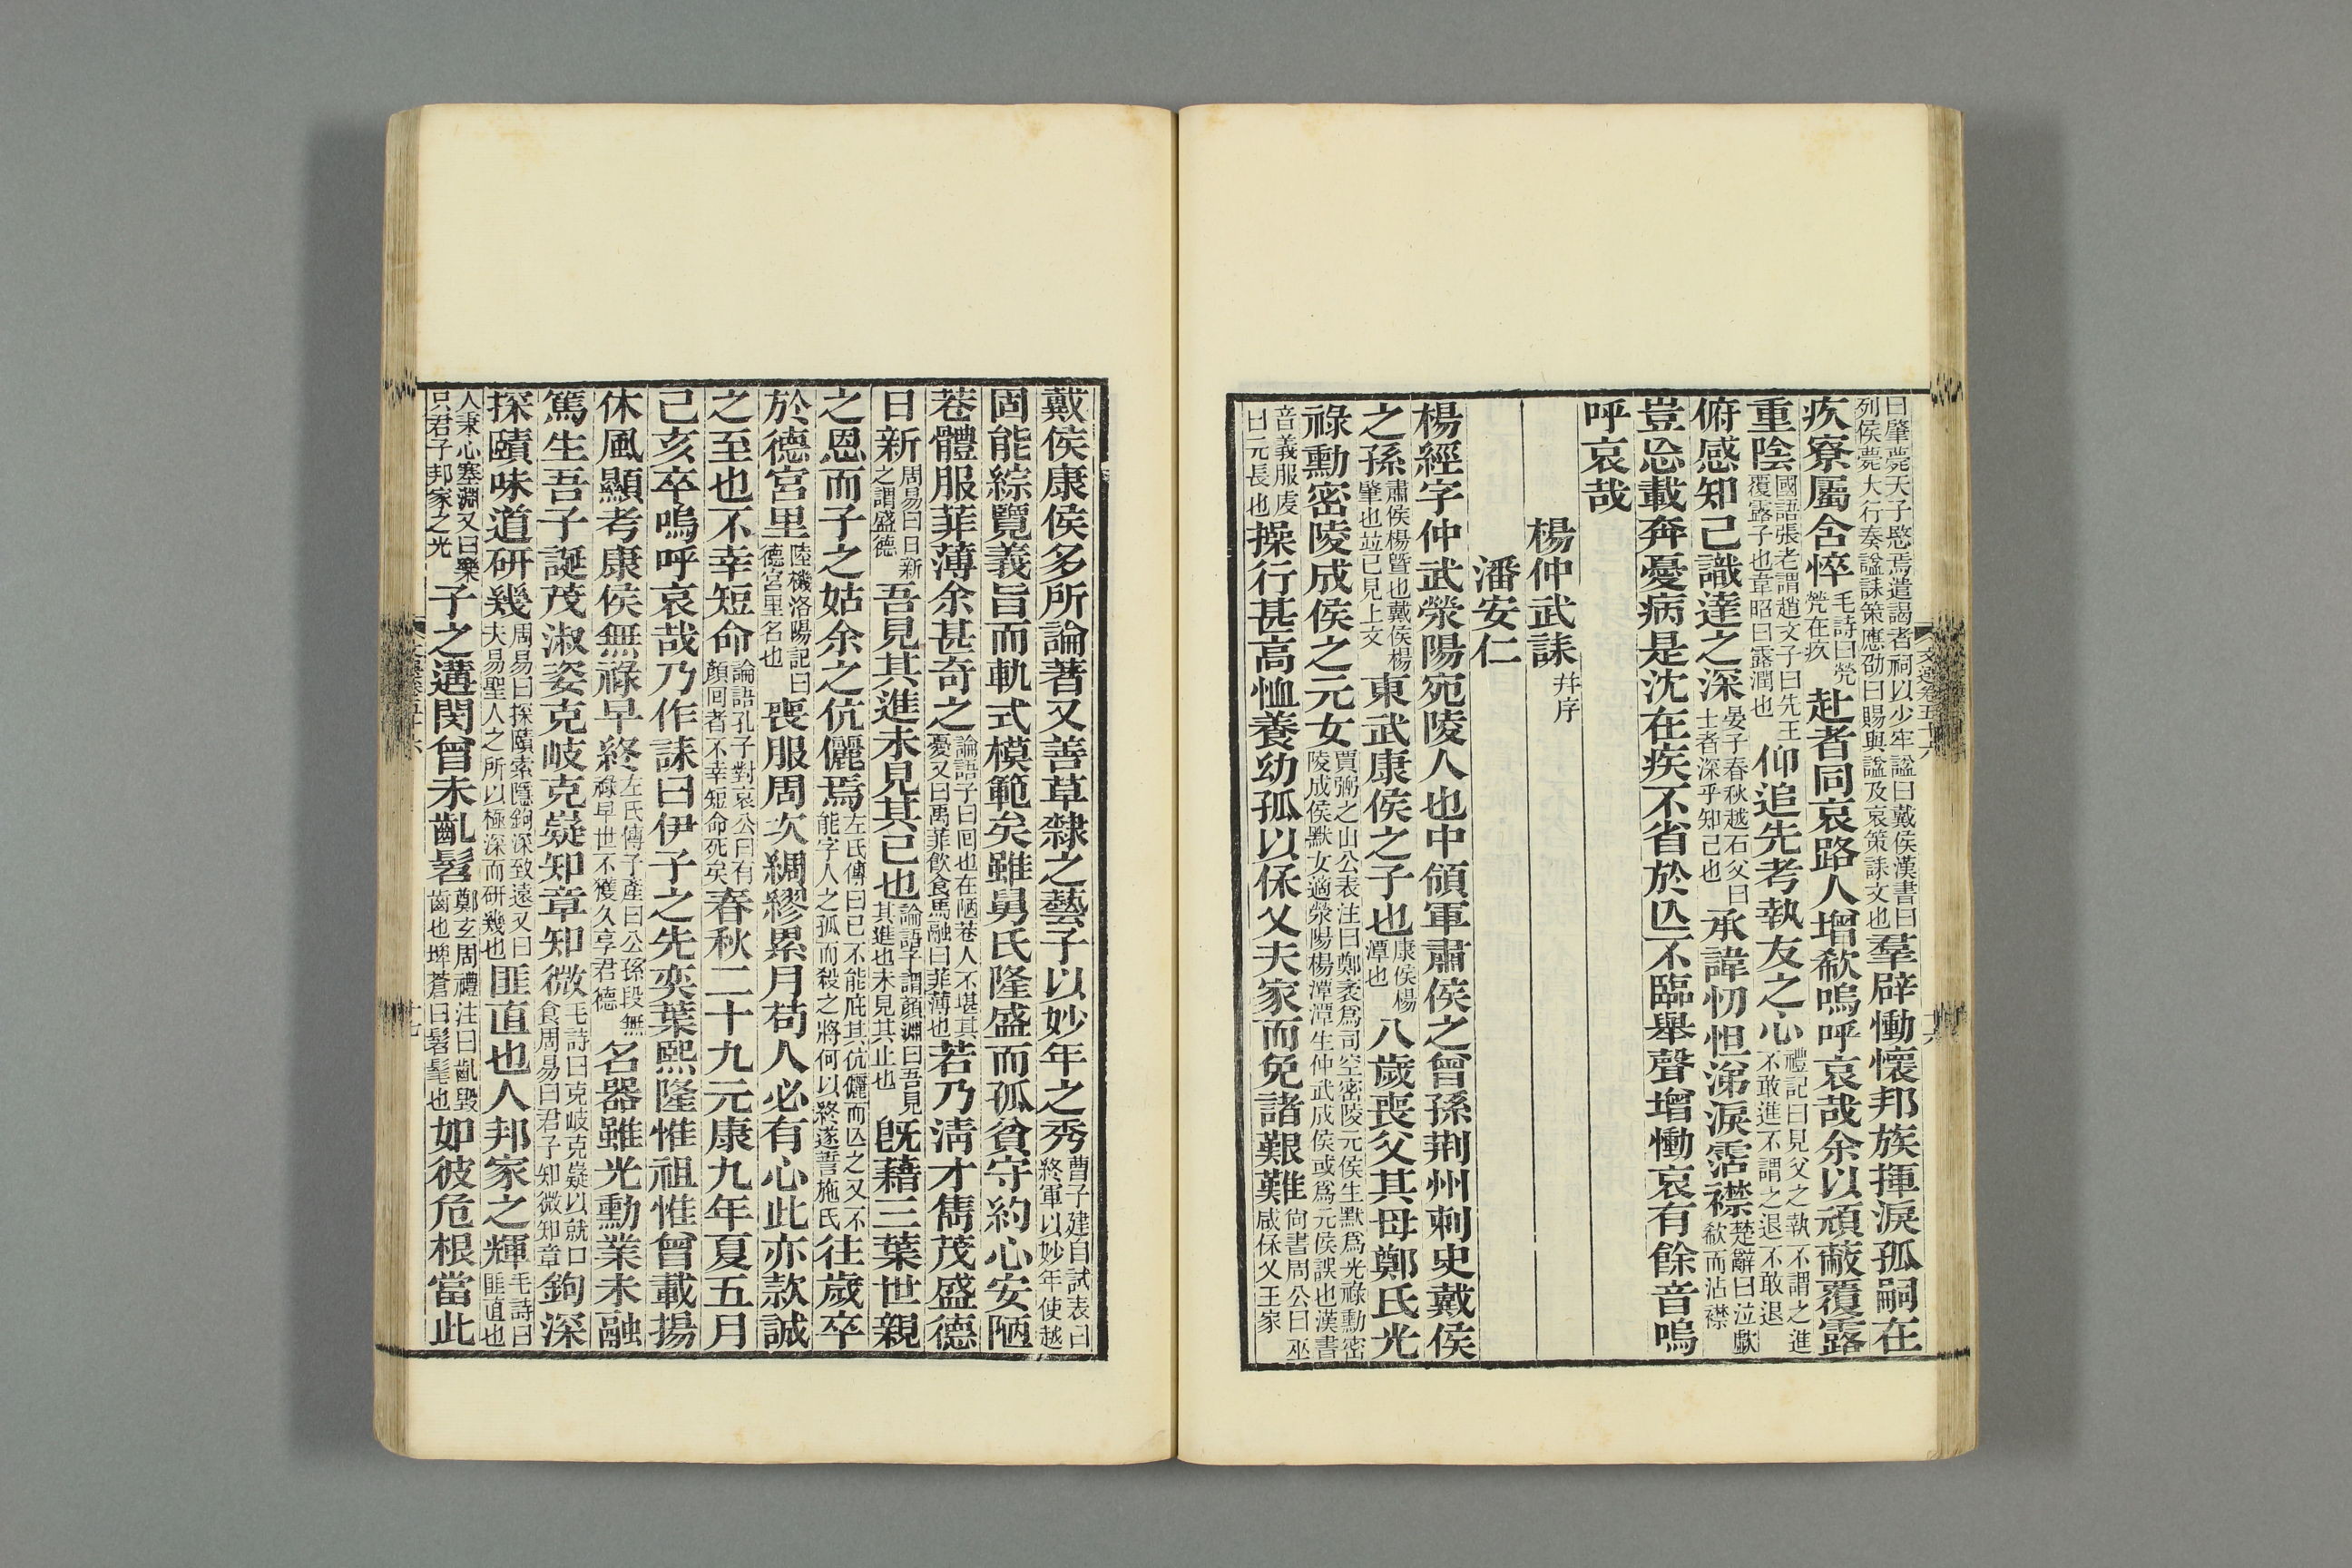 曰肇薨天子愍焉遣謁者祠以少牢諡曰戴侯漢書曰
列侯薨大行奏諡誄策應劭曰賜與諡及哀策誄文也
羣辟慟懷邦族揮淚孤嗣在
疚寮屬含悴
毛詩曰煢
煢在疚
赴者同哀路人增欷嗚呼哀哉余以頑蔽覆露
重陰
國語張老謂趙文子曰先王
覆露子也韋昭曰露潤也
仰追先考執友之心
禮記曰見父之執不謂之進
不敢進不謂之退不敢退
俯感知己識達之深
晏子春秋越石父曰
士者深乎知己也
承諱忉怛涕淚霑襟
楚辭曰泣歔
欷而沾襟
豈忘載奔憂病是沈在疾不省於亾不臨舉聲增慟哀有餘音嗚
呼哀哉
楊仲武誄
幷序
潘安仁
楊經字仲武滎陽宛陵人也中領軍肅侯之曾孫荆州刺史戴侯
之孫
肅侯楊曁也戴侯楊
肇也竝已見上文
東武康侯之子也
康侯楊
潭也
八歲喪父其母鄭氏光
祿勳密陵成侯之元女
賈弼之山公表注曰鄭袤爲司空密陵元侯生默爲光祿勳密
陵成侯默女適滎陽楊潭潭生仲武成侯或爲元侯誤也漢書
音義服虔
曰元長也
操行甚高恤養幼孤以保乂夫家而免諸艱難
尙書周公曰巫
咸保乂王家
戴侯康侯多所論著又善草隸之藝子以妙年之秀
曹子建自試表曰
終軍以妙年使越
固能綜覽義旨而軌式模範矣雖舅氏隆盛而孤貧守約心安陋
巷體服菲薄余甚奇之
論語子曰回也在陋巷人不堪其
憂又曰禹菲飮食馬融曰菲薄也
若乃淸才儁茂盛德
日新
周易曰日新
之謂盛德
吾見其進未見其已也
論語子謂顏淵曰吾見
其進也未見其止也
旣藉三葉世親
之恩而子之姑余之伉儷焉
左氏傳曰已不能庇其伉儷而亾之又不
能字人之孤而殺之將何以終遂誓施氏
往歲卒
於德宮里
陸機洛陽記曰
德宮里名也
喪服周次綢繆累月苟人必有心此亦款誠
之至也不幸短命
論語孔子對哀公曰有
顏回者不幸短命死矣
春秋二十九元康九年夏五月
己亥卒嗚呼哀哉乃作誄曰伊子之先奕葉熙隆惟祖惟曾載揚
休風顯考康侯無祿早終
左氏傳子產曰公孫段無
祿早世不獲久享君德
名器雖光勳業未融
篤生吾子誕茂淑姿克岐克嶷知章知微
毛詩曰克岐克嶷以就口
食周易曰君子知微知章
鉤深
探賾味道研幾
周易曰探賾索隱鉤深致遠又曰
夫易聖人之所以極深而研幾也
匪直也人邦家之輝
毛詩曰
匪直也
人秉心塞淵又曰樂
只君子邦家之光
子之遘閔曾未齓髫
鄭玄周禮注曰齓毀
齒也埤蒼曰髫髦也
如彼危根當此
文選卷五十六
十六
十七